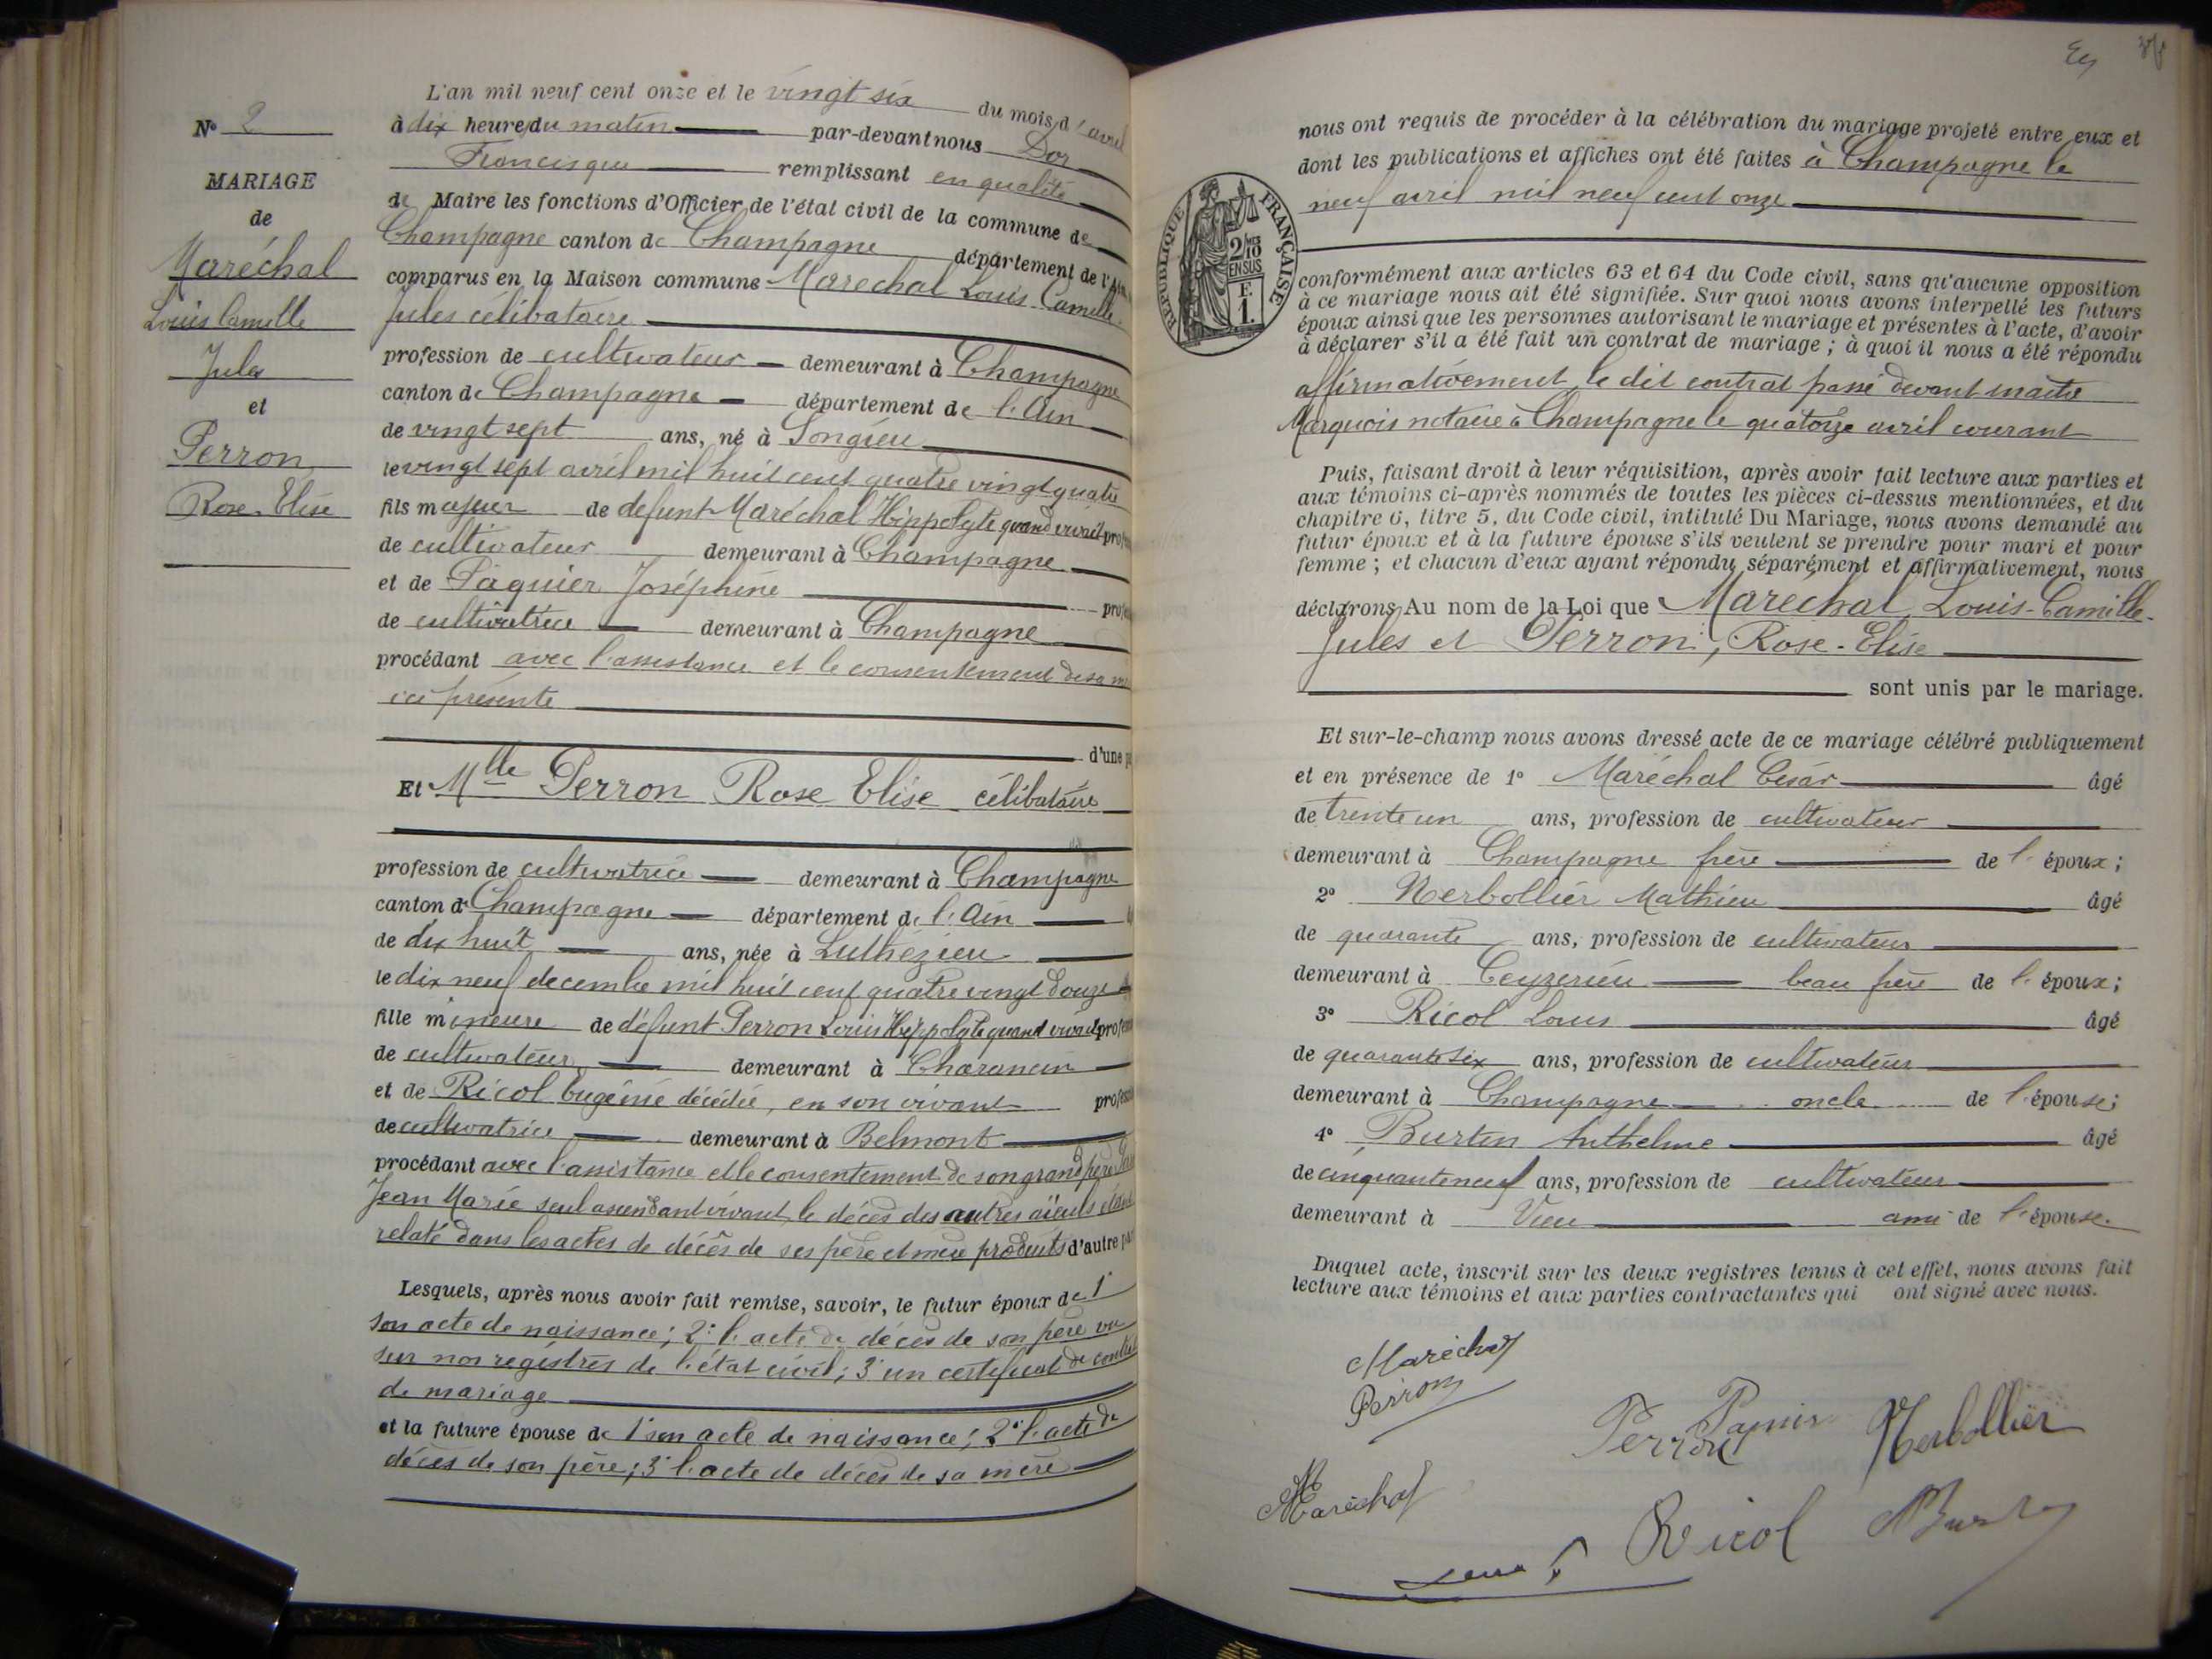 N° 2
MARIAGE
de
Maréchal
Louis Camille
Jules
et
Perron
Rose Elise
L'an mil neuf cent onze et le vingt six du mois d'avril
à dix heure du matin par-devant nous Dor
Francisque remplissant en qualité
de Maire les fonctions d'Officier de l'état civil de la commune de
Champagne canton de Champagne département de l'Ain
comparus en la Maison commune Maréchal Louis-Camille
Jules célibataire
profession de cultivateur demeurant à Champagne
canton de Champagne département de l'Ain
de vingt sept ans, né à Songieu
le vingt sept avril mil huit cent quatre vingt quatre
fils majeur de défunt Maréchal Hippolyte quand vivait
de cultivateur demeurant à Champagne
et de Paquier Joséphine
de cultivatrice demeurant à Champagne
procédant avec l'assistance et le consentement de sa
ici présente
d'une
Et Mlle Perron Rose Elise célibataire
profession de cultivatrice demeurant à Champagne
canton de Champagne département de l'Ain
de dix huit ans, née à Luthézieu
le dix neuf decembre mil huit cent quatre vingt douze
fille mineure de défunt Perron Louis Hippolyte quand vivait
de cultivateur demeurant à Charancin
et de Ricol Eugénie décédée, en son vivant
de cultivatrice demeurant à Belmont
procédant avec l'assistance et le consentement de son grand père
Jean Marie seul ascendant vivant, le décès des autres aïeuls étant
relaté dans les actes de décès de ses père et mère produits d'autre
Lesquels, après nous avoir fait remise, savoir, le futur époux de 1°
son acte de naissance; 2° l'acte de décès de son père vu
sur nos registres de l'état civil; 3° un certificat de contrat
de mariage
et la future épouse de 1° son acte de naissance; 2° l'acte de
décès de son père; 3° l'acte de décès de sa mère
nous ont requis de procéder à la célébration du mariage projeté entre eux et
dont les publications et affiches ont été faites à Champagne le
neuf avril mil neuf cent onze
RÉPUBLIQUE FRANÇAISE
2/10
EN SUS
F.
1.
conformément aux articles 63 et 64 du Code civil, sans qu'aucune opposition
à ce mariage nous ait été signifiée. Sur quoi nous avons interpellé les futurs
époux ainsi que les personnes autorisant le mariage et présentes à l'acte, d'avoir
à déclarer s'il a été fait un contrat de mariage; à quoi il nous a été répondu
affirmativement, le dit contrat passé devant maître
Marquois notaire à Champagne le quatorze avril courant
Puis, faisant droit à leur réquisition, après avoir fait lecture aux parties et
aux témoins ci-après nommés de toutes les pièces ci-dessus mentionnées, et du
chapitre 6, titre 5, du Code civil, intitulé Du Mariage, nous avons demandé au
futur époux et à la future épouse s'ils veulent se prendre pour mari et pour
femme; et chacun d'eux ayant répondu séparément et affirmativement, nous
déclarons Au nom de la Loi que Maréchal Louis-Camille-
Jules et Perron, Rose-Elise
sont unis par le mariage.
Et sur-le-champ nous avons dressé acte de ce mariage célébré publiquement
et en présence de 1° Maréchal César âgé
de trente un ans, profession de cultivateur
demeurant à Champagne frère de l'époux;
2° Nerbollier Mathieu âgé
de quarante ans, profession de cultivateur
demeurant à Ceyzerieu beau frère de l'époux;
3° Ricol Louis âgé
de quarante six ans, profession de cultivateur
demeurant à Champagne oncle de l'épouse;
4° Burtin Anthelme âgé
de cinquante neuf ans, profession de cultivateur
demeurant à Vieu ami de l'épouse.
Duquel acte, inscrit sur les deux registres tenus à cet effet, nous avons fait
lecture aux témoins et aux parties contractantes qui ont signé avec nous.
Maréchal
Perron
Perron
Nerbollier
Maréchal
Ricol